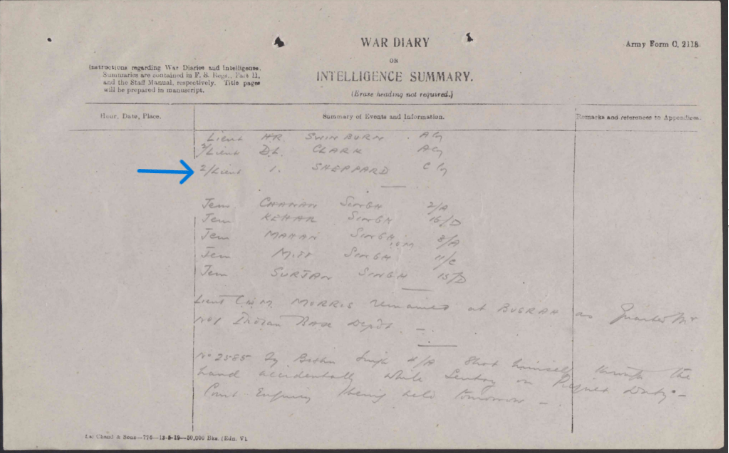 WAR DIARY
OR
INTELLIGENCE SUMMARY.
(Erase heading not required.)
Army Form C. 2118.
Instructions regarding War Diaries and Intelligence
Summaries are contained in F. S. Regs., Part II,
and the Staff Manual, respectively. Title pages
will be prepared in manuscript.
Hour, Date, Place.
Summary of Events and Information.
Remarks and references to Appendices.
Lieut HR SWINBORN
2/Lieut D.L. CLARK
2/Lieut 1. SHEPPARD
Jem CHANAN SINGH 2/A
Jem KEHAR SINGH 16/D
Jem SINGH 8/A
Jem SINGH 11/C
Jem SURJAN SINGH 15/D
Lieut MORRIS remained at BUSRAH as
No 1 Indian Base Depôt. —
No 2585 Singh shot himself through the
hand accidentally while Sentry on Piquet Duty —
Court Enquiry being held tomorrow —